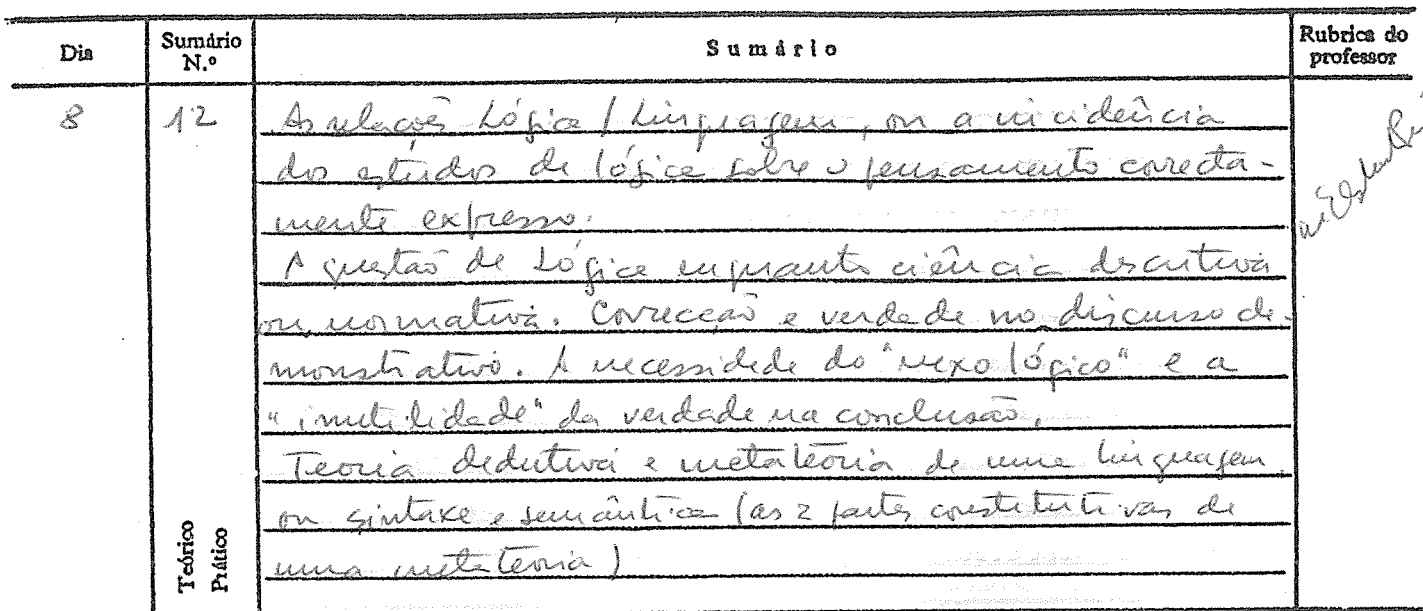 Dia Sumário N.º Sumário Rubrica do professor
8 12 As relações Lógica / Linguagem, ou a incidência
dos estudos de lógica sobre o pensamento correcta-
mente expresso.
A questão de Lógica enquanto ciência descritiva
ou normativa. Correcção e verdade no discurso de-
monstrativo. A necessidade do "nexo lógico" e a
"inutilidade" da verdade na conclusão.
Teoria dedutiva e metateoria de uma linguagem
ou sintaxe e semântica (as 2 partes constitutivas de
uma metateoria)
Teórico
Prático